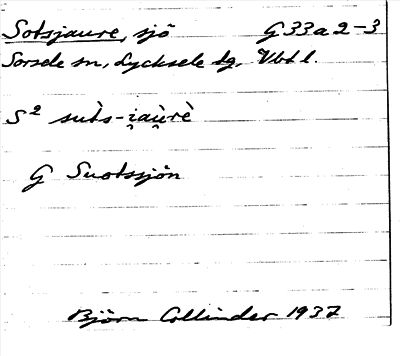 Sotsjaure, sjö G 33 a 2-3
Sorsele sn, Lycksele lg, Vbtl.
S² sùts-i̯au̯rè
G Suotssjön
Björn Collinder 1937